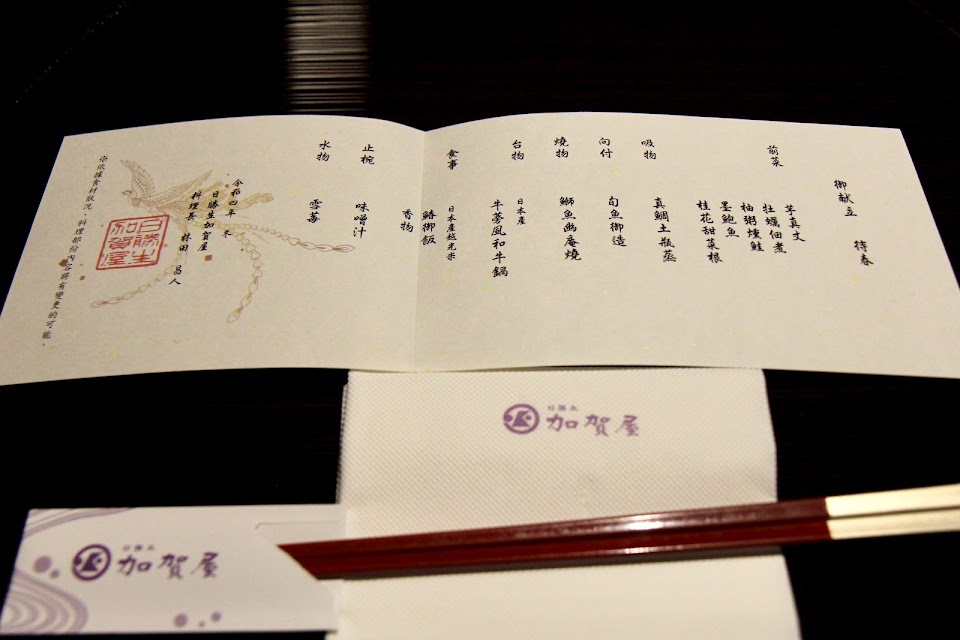 御献立　待春
前菜
芋真丈
牡蠣佃煮
柚粥燻鮭
墨鮑魚
桂花甜菜根
吸物
真鯛土瓶蒸
向付
旬魚御造
燒物
鰤魚幽庵燒
台物
日本産
牛蒡風和牛鍋
食事
日本産越光米
鰆御飯
香物
止椀
味噌汁
水物
雪莓
令和四年　冬
日勝生加賀屋
料理長　林田　昌人
日勝生加賀屋
※依據食材狀況、料理部份內容將有變更的可能。
日勝生
加賀屋
日勝生
加賀屋